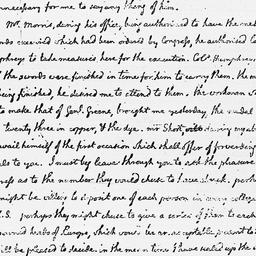 unnecessary for me to say any thing of him.
Mr. Morris, during his office, being authorised to have the med
ords executed which had been ordered by Congress, he authorised Co
mphreys to take measures here for the execution. Colo. Humphreys
the swords were finished in time for him to carry them. the m
being finished, he desired me to attend to them. the workman w
to make that of Genl. Greene, brought me yesterday, the medal
twenty three in copper, & the dye. mr Short, during my ab
avail himself of the first occasion which shall offer of forwarding
als to you. I must beg leave through you to ask the pleasure
ress as to the number they would chuse to have struck. perh
might be willing to deposit one of each person in every college
U.S. perhaps they might chuse to give a series of them to each
crowned heads of Europe, which would be an acceptable present to t
ill be pleased to decide. in the mean time I have sealed up the